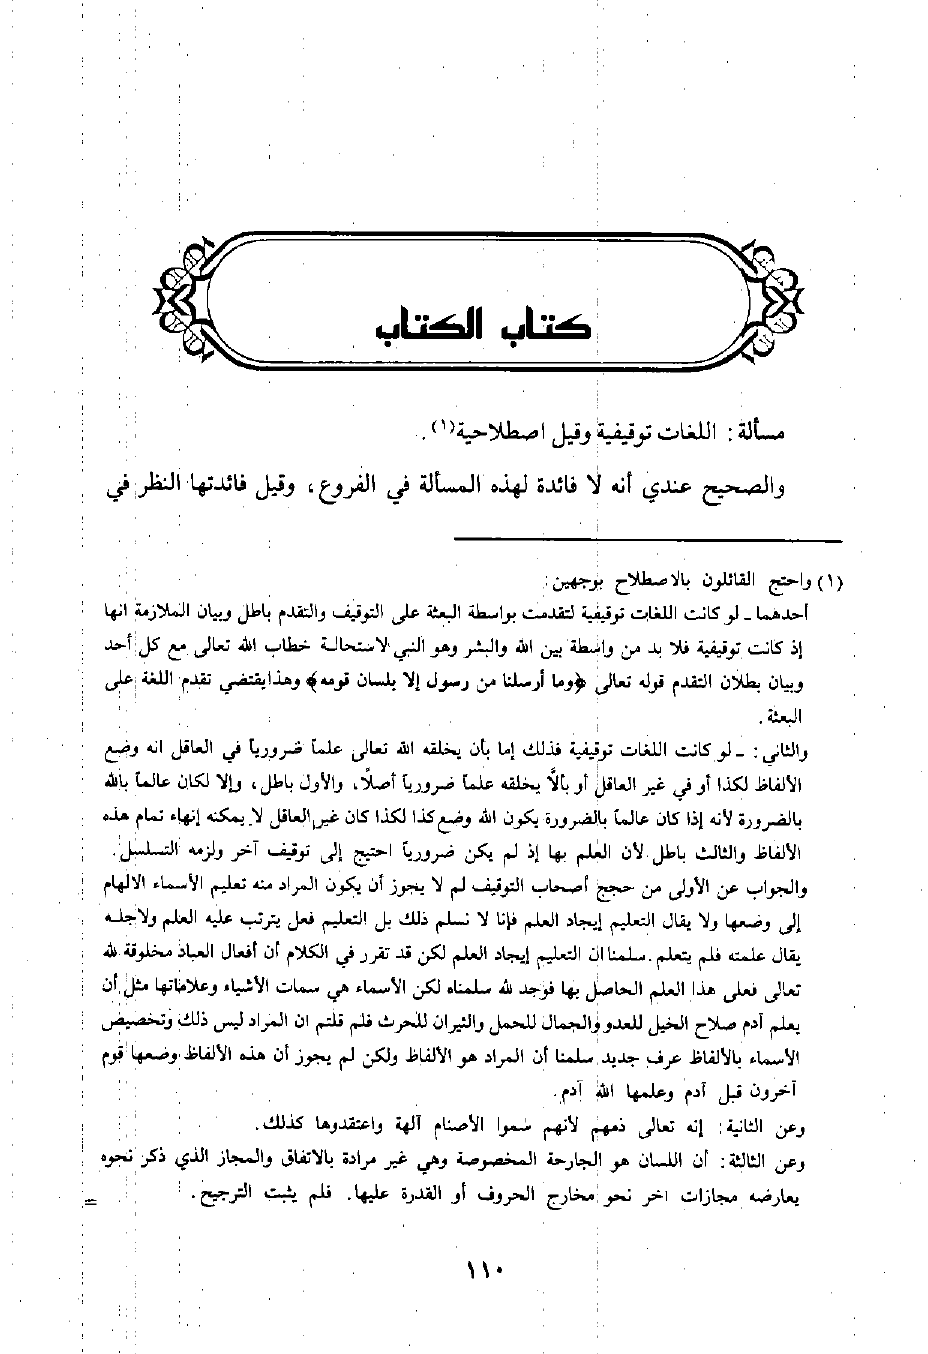 كتاب الكتاب
مسألة: اللغات توقيفية وقيل اصطلاحية(١).
والصحيح عندي أنه لا فائدة لهذه المسألة في الفروع، وقيل فائدتها النظر في
(١) واحتج القائلون بالاصطلاح بوجهين:
أحدهما ـ لو كانت اللغات توقيفية لتقدمت بواسطة البعثة على التوقيف والتقدم باطل وبيان الملازمة انها
إذ كانت توقيفية فلا بد من واسطة بين الله والبشر وهو النبي لاستحالة خطاب الله تعالى مع كل أحد
وبيان بطلان التقدم قوله تعالى ﴿وما أرسلنا من رسول إلا بلسان قومه﴾ وهذا يقتضي تقدم اللغة على
البعثة.
والثاني: ـ لو كانت اللغات توقيفية فذلك إما بأن يخلقه الله تعالى علماً ضرورياً في العاقل انه وضع
الألفاظ لكذا أو في غير العاقل أو بألاّ يخلقه علماً ضرورياً أصلاً، والأول باطل، وإلا لكان عالماً بالله
بالضرورة لأنه إذا كان عالماً بالضرورة يكون الله وضع كذا لكذا كان غير العاقل لا يمكنه إنهاء تمام هذه
الألفاظ والثالث باطل لأن العلم بها إذ لم يكن ضرورياً احتيج إلى توقيف آخر ولزمه التسلسل.
والجواب عن الأولى من حجج أصحاب التوقيف لم لا يجوز أن يكون المراد منه تعليم الأسماء الالهام
إلى وضعها ولا يقال التعليم إيجاد العلم فإنا لا نسلم ذلك بل التعليم فعل يترتب عليه العلم ولاجله
يقال علمته فلم يتعلم. سلمنا ان التعليم إيجاد العلم لكن قد تقرر في الكلام أن أفعال العباد مخلوقة لله
تعالى فعلى هذا العلم الحاصل بها فوجد لله سلمناه لكن الأسماء هي سمات الأشياء وعلاماتها مثل أن
يعلم آدم صلاح الخيل للعدو والجمال للحمل والثيران للحرث فلم قلتم ان المراد ليس ذلك وتخصيص
الأسماء بالألفاظ عرف جديد سلمنا أن المراد هو الألفاظ ولكن لم يجوز أن هذه الألفاظ وضعها قوم
آخرون قبل آدم وعلمها الله آدم.
وعن الثانية: إنه تعالى ذمهم لأنهم سموا الأصنام آلهة واعتقدوها كذلك.
وعن الثالثة: أن اللسان هو الجارحة المخصوصة وهي غير مرادة بالاتفاق والمجاز الذي ذكر نحوه
يعارضه مجازات اخر نحو مخارج الحروف أو القدرة عليها. فلم يثبت الترجيح. =
١١٠